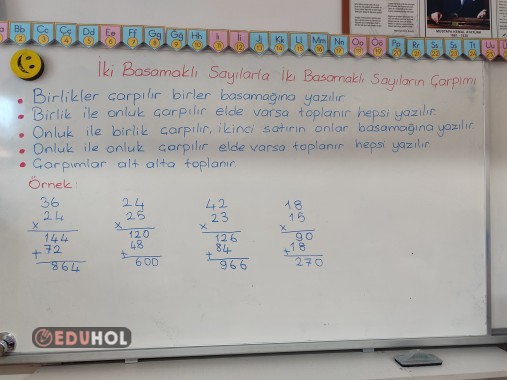 Bb Cc Çç Dd Ee Ff Gg Ğğ Hh Iı İi Jj Kk Ll Mm Nn Oo Öö Pp Rr Ss Şş Tt Uu
MUSTAFA KEMAL ATATÜRK
İki Basamaklı Sayılarla İki Basamaklı Sayıların Çarpımı
• Birlikler çarpılır birler basamağına yazılır.
• Birlik ile onluk çarpılır elde varsa toplanır hepsi yazılır.
• Onluk ile birlik çarpılır, ikinci satırın onlar basamağına yazılır
• Onluk ile onluk çarpılır elde varsa toplanır hepsi yazılır
• Çarpımlar alt alta toplanır.
Örnek:
36 24 42 18
x 24 x 25 x 23 x 15
144 120 126 90
+72 +48 +84 +18
864 600 966 270
EDUHOL